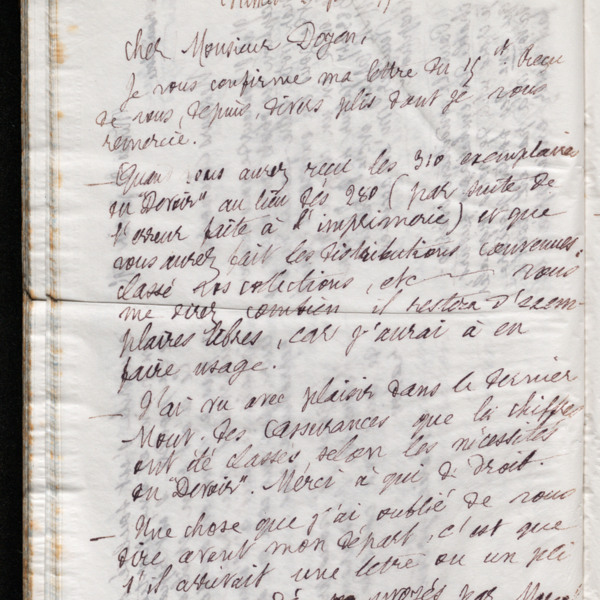 cher Monsieur Doyen,
Je vous confirme ma lettre du 15 ct. Reçu
de vous, depuis, divers plis dont je vous
remercie.
— Quand vous aurez reçu les 310 exemplaires
du "Devoir" au lieu des 280 (par suite de
l'erreur faite à l'imprimerie) et que
vous aurez fait les distributions convenues,
classé vos colections, etc — vous
me direz combien il restera d'exem-
plaires libres, car j'aurai à en
faire usage.
— J'ai vu avec plaisir dans le dernier
Mouv. des assurances que les chiffres
ont été classés selon les nécessités
du "Devoir". Merci à qui de droit.
— Une chose que j'ai oublié de vous
dire avant mon départ, c'est que
s'il arrivait une lettre ou un pli
par